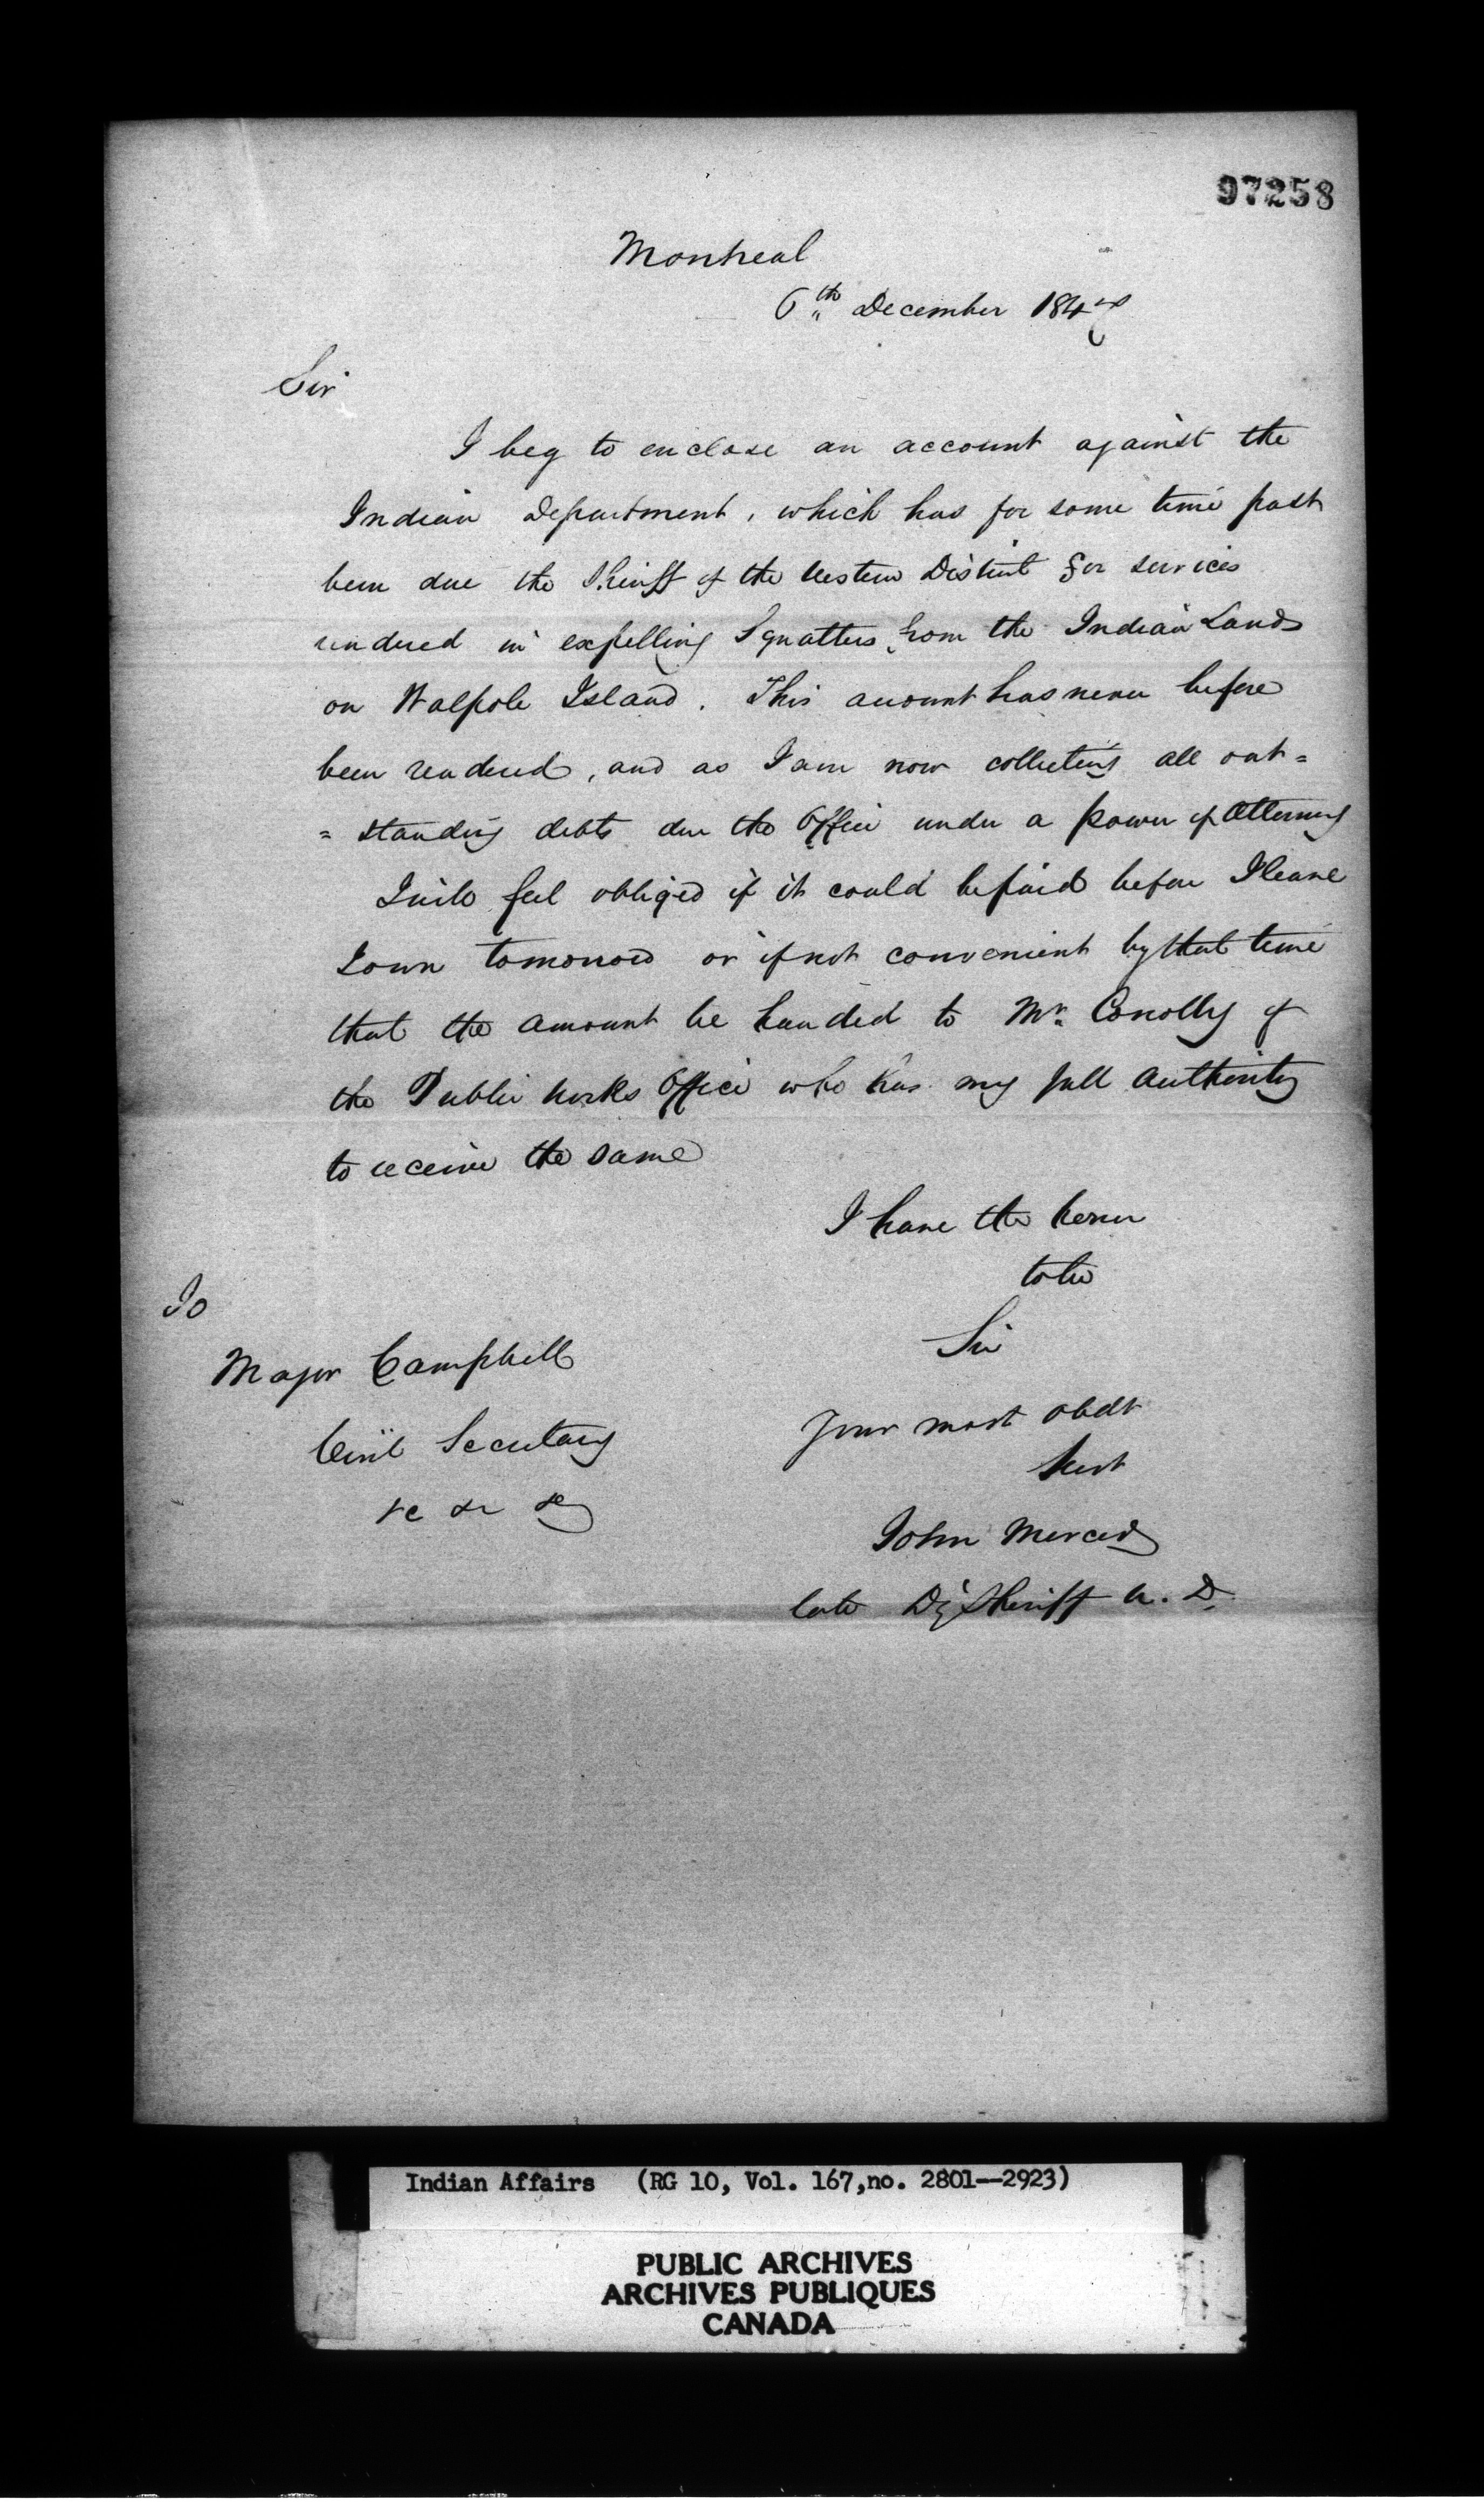 97258
Montreal
6th December 184
Sir
I beg to enclose an account against the
Indian Department, which has for some time past
been due the Sheriff of the Western District for services
rendered in expelling Squatters from the Indian Lands
on Walpole Island. This account has never before
been rendered, and as I am now collecting all out=
=standing debts due the Office under a power of Attorney
I will feel obliged if it could be paid before I leave
Town tomorrow or if not convenient by that time
that the amount be handed to Mr. Conolly of
the Public Works Office who has my full authority
to receive the same
I have the honor
to be
Sir
Your most obdt
Servt
John Mercer
late Dy Sheriff W. D.
To
Major Campbell
Civil Secretary
&c &c &c
Indian Affairs (RG 10, Vol. 167,no. 2801--2923)
PUBLIC ARCHIVES
ARCHIVES PUBLIQUES
CANADA